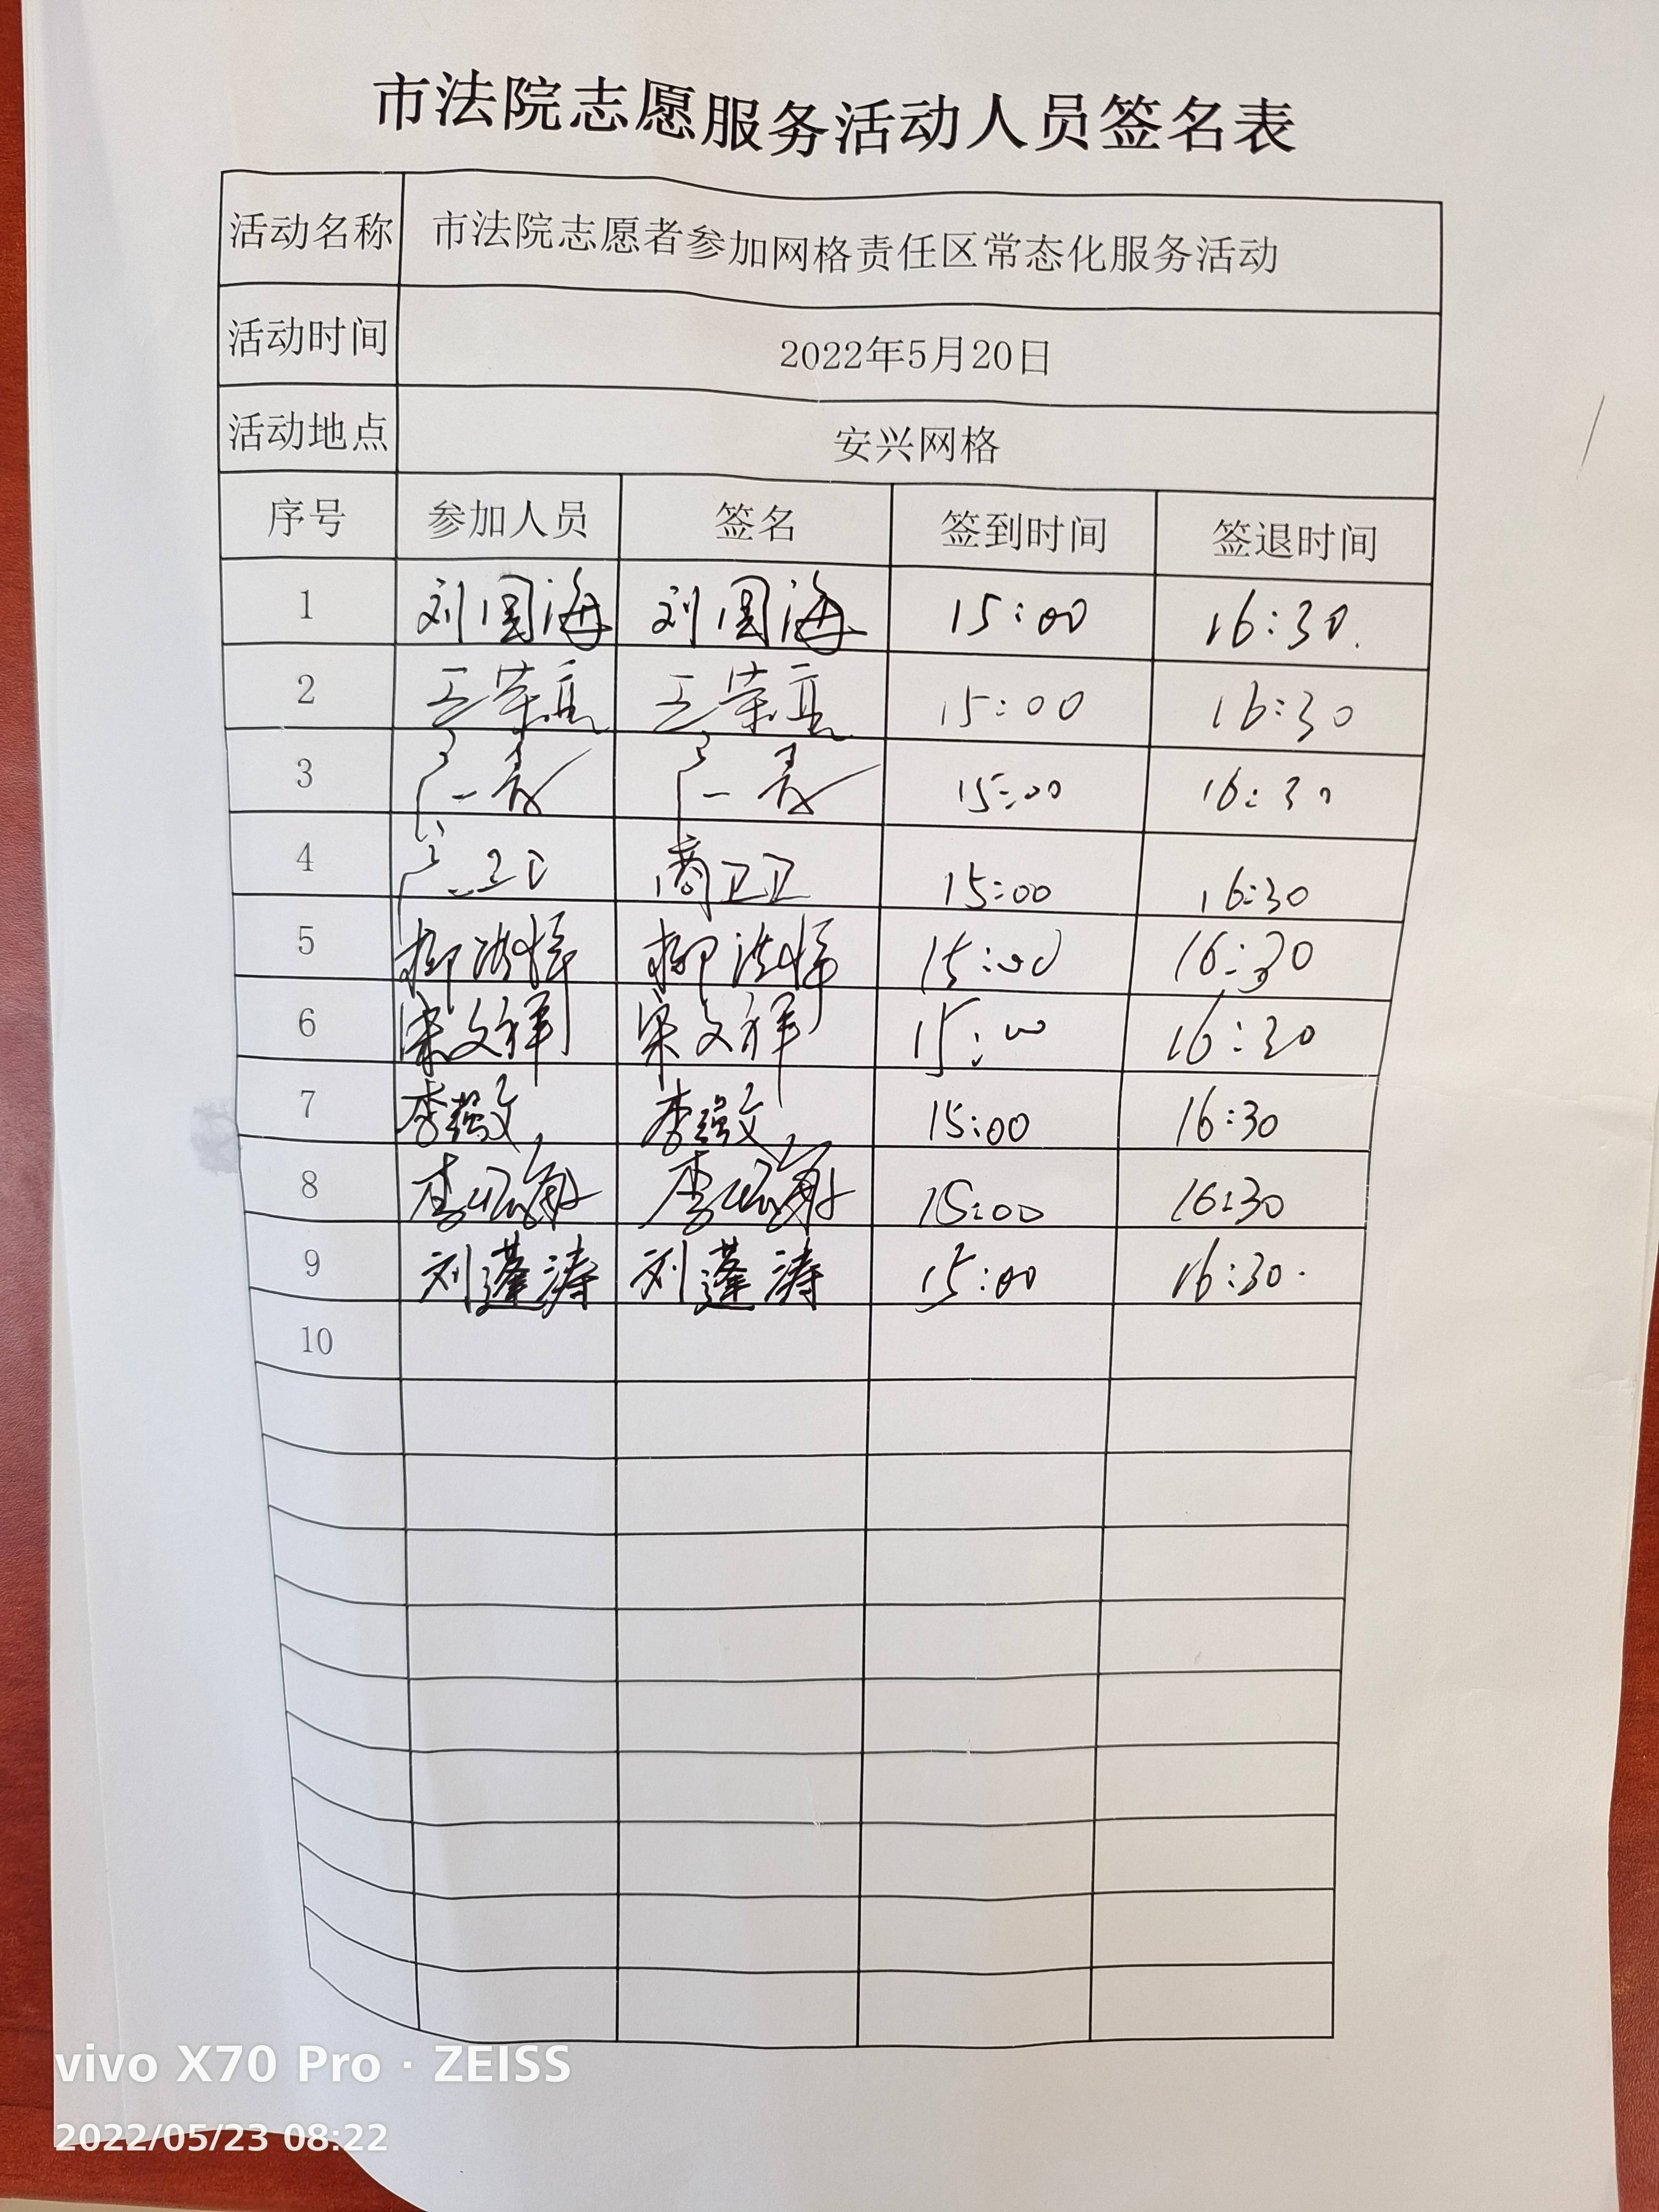 市法院志愿服务活动人员签名表
活动名称 市法院志愿者参加网格责任区常态化服务活动
活动时间 2022年5月20日
活动地点 安兴网格
序号 参加人员 签名 签到时间 签退时间
1 刘国海 刘国海 15:00 16:30.
2 王荣亮 王荣亮 15:00 16:30
3 15:00 16:30
4 商卫卫 15:00 16:30
5 柳洪 柳洪 15:00 16:30
6 宋文祥 宋文祥 15:00 16:30
7 李强文 李强文 15:00 16:30
8 李 李 15:00 16:30
9 刘蓬涛 刘蓬涛 15:00 16:30.
10
vivo X70 Pro · ZEISS
2022/05/23 08:22